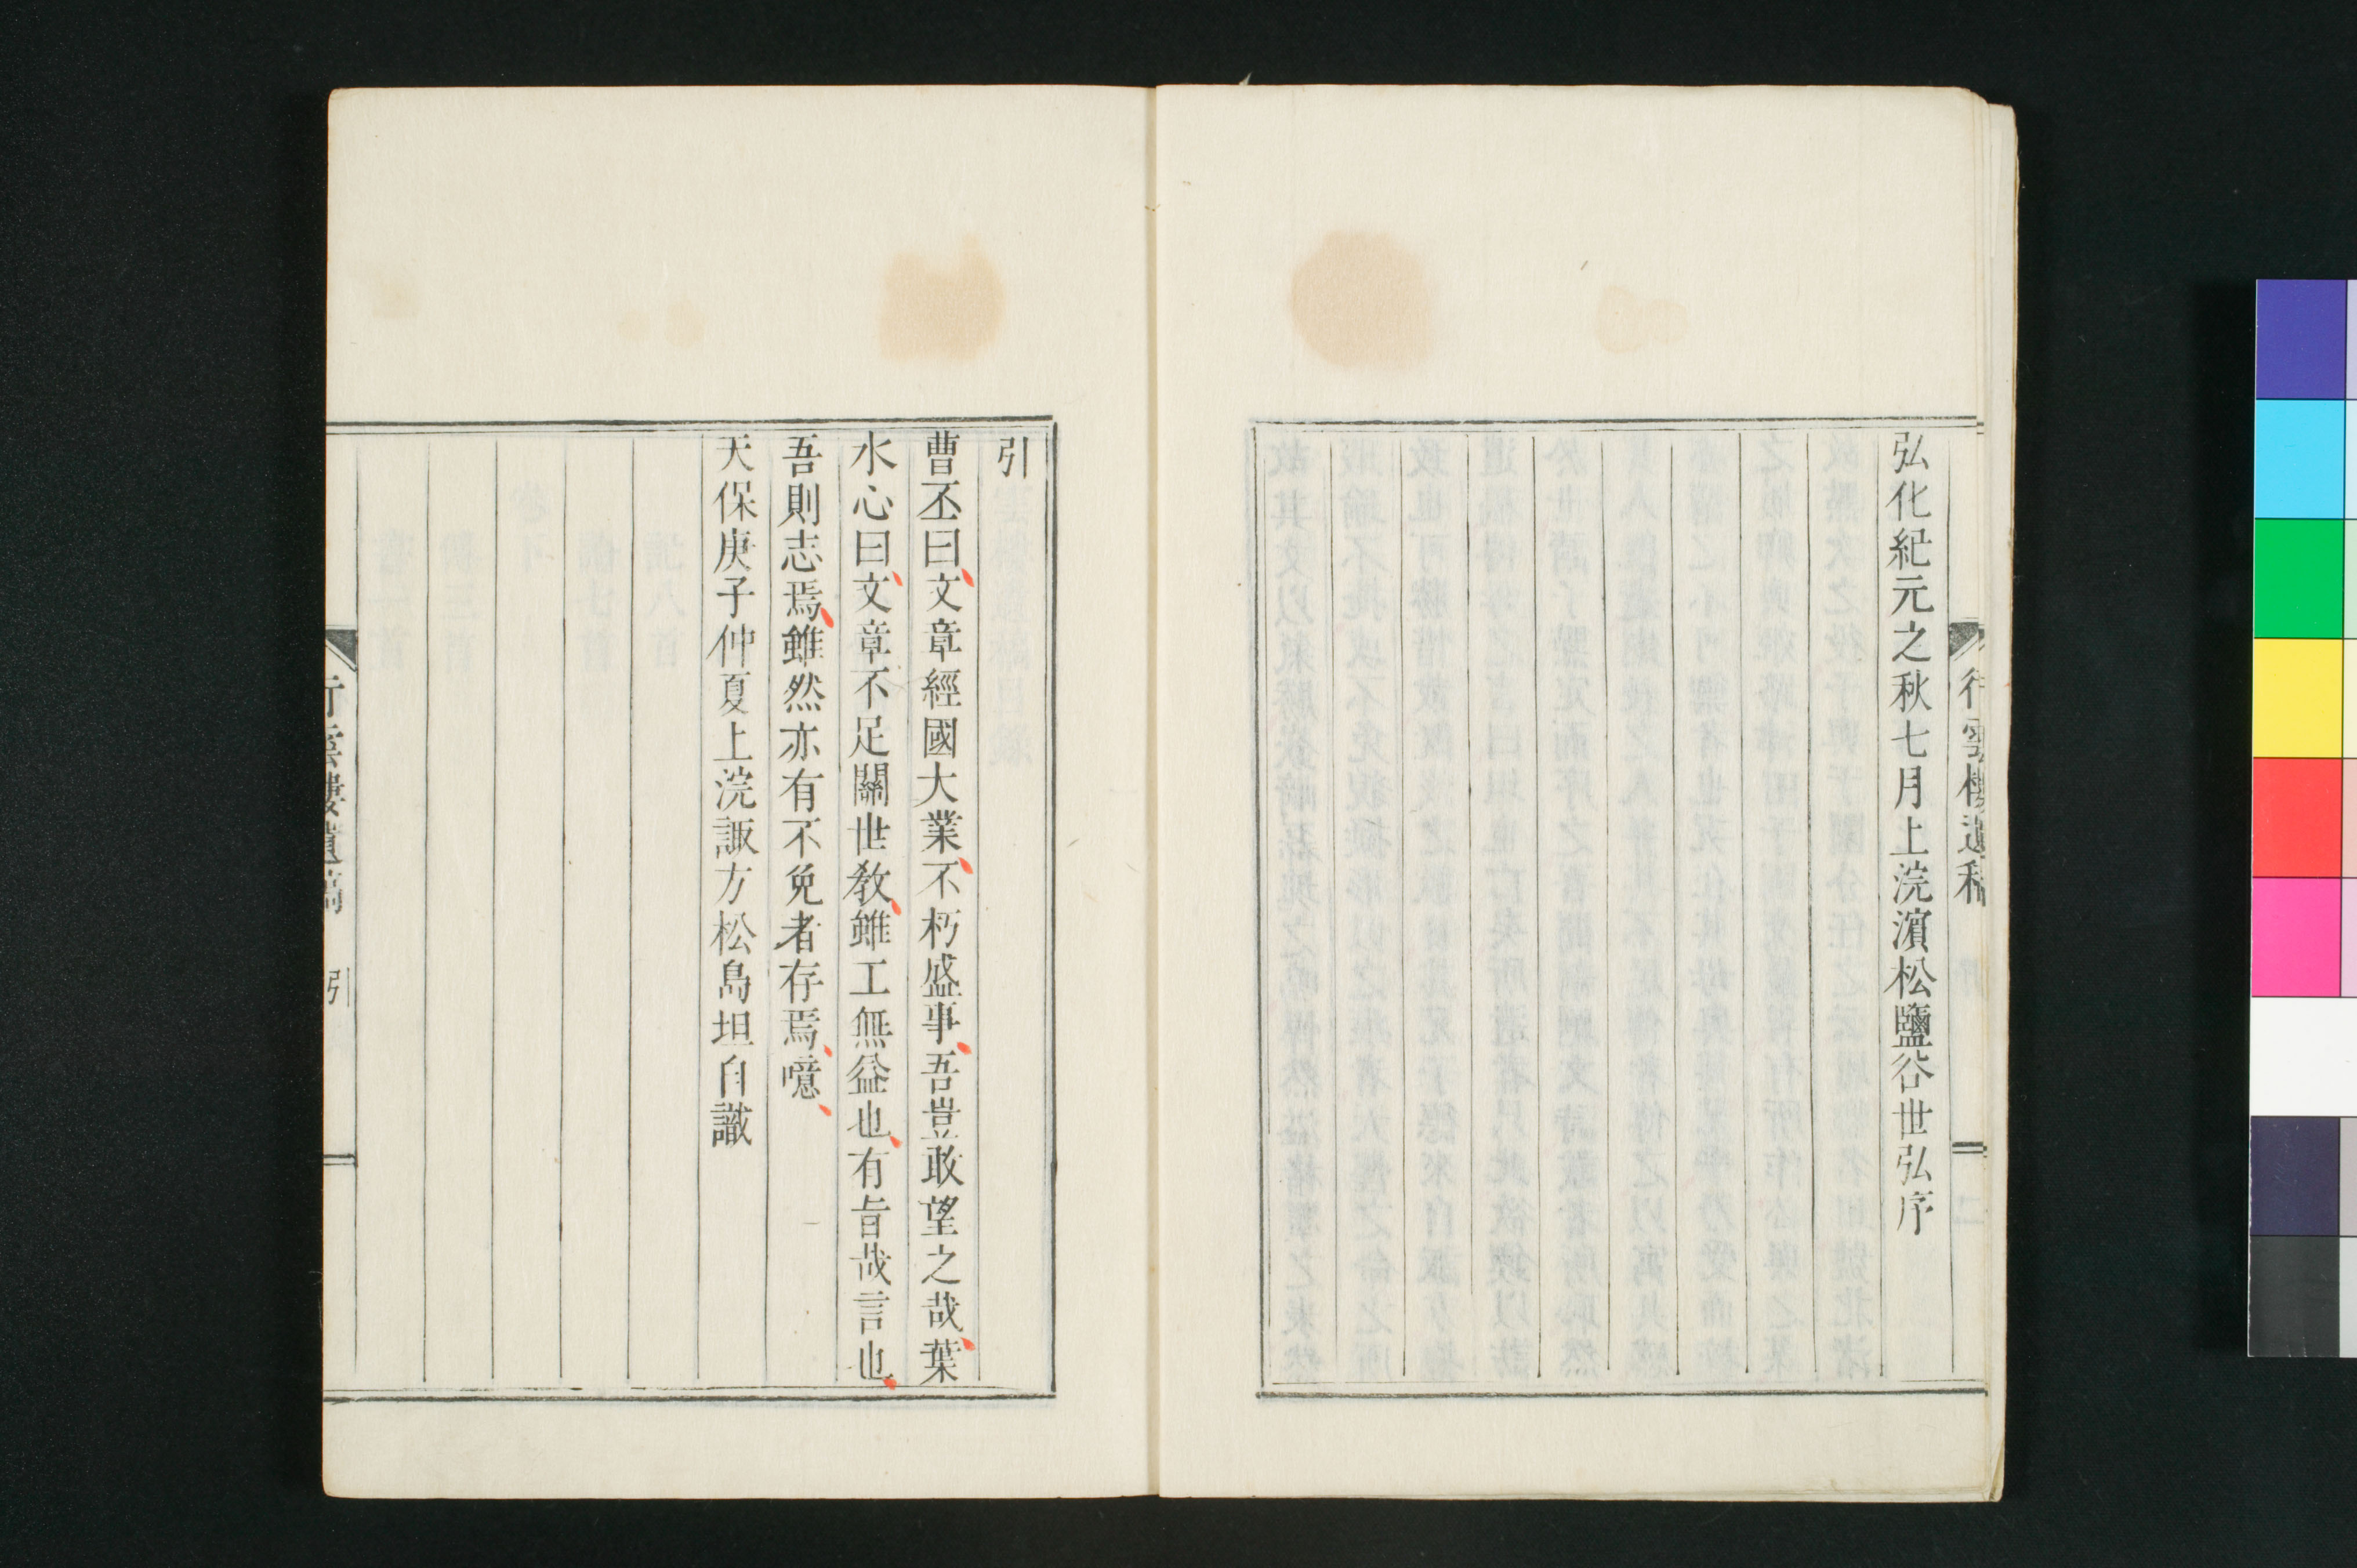 弘化紀元之秋七月上浣濵松鹽谷世弘序
行雲樓遺稿
引
曹丕曰文章經國大業不朽盛事吾豈敢望之哉葉
水心曰文章不足關世敎雖工無益也有旨哉言也
吾則志焉雖然亦有不免者存焉噫
天保庚子仲夏上浣諏方松島坦自識
行雲樓遺稿 引